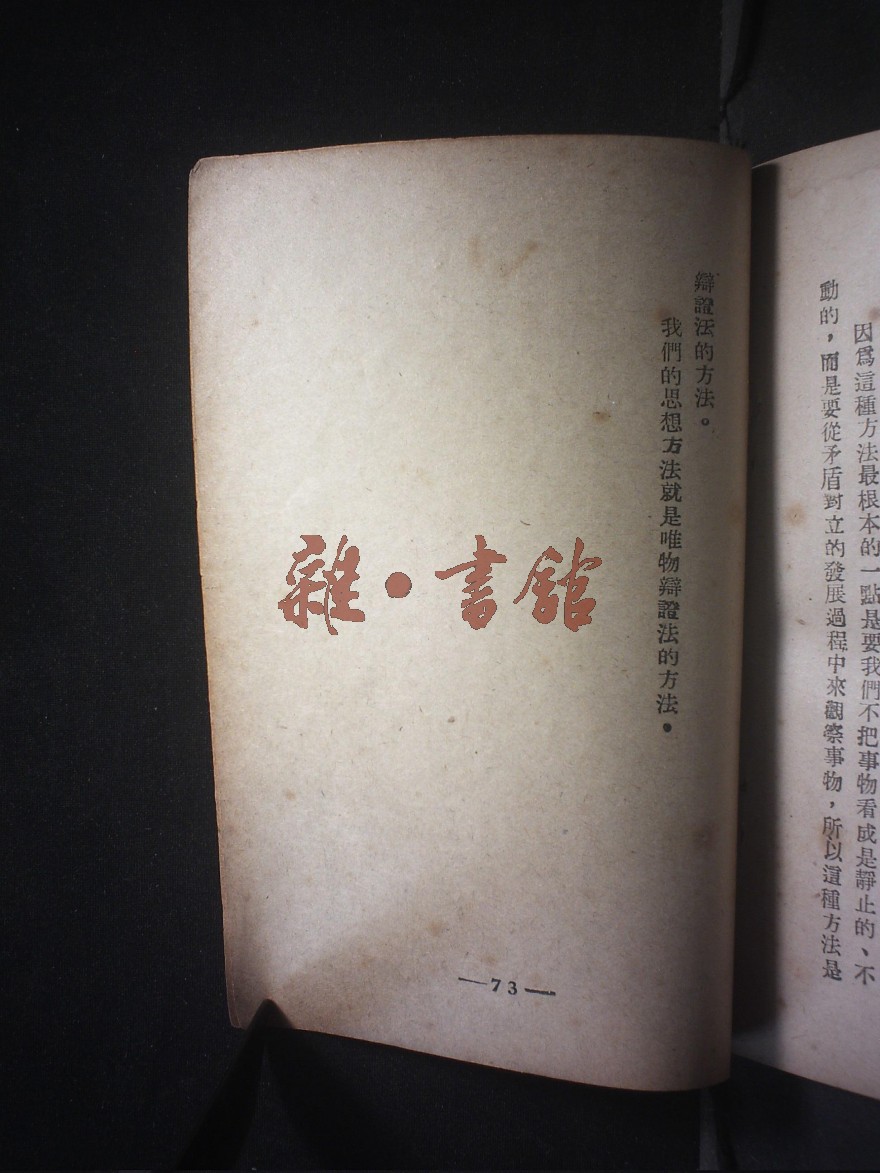 因爲這種方法最根本的一點是要我們不把事物看成是靜止的、不
動的，而是要從矛盾對立的發展過程中來觀察事物，所以這種方法是
辯證法的方法。
我們的思想方法就是唯物辯證法的方法。
雜·書館
—73—